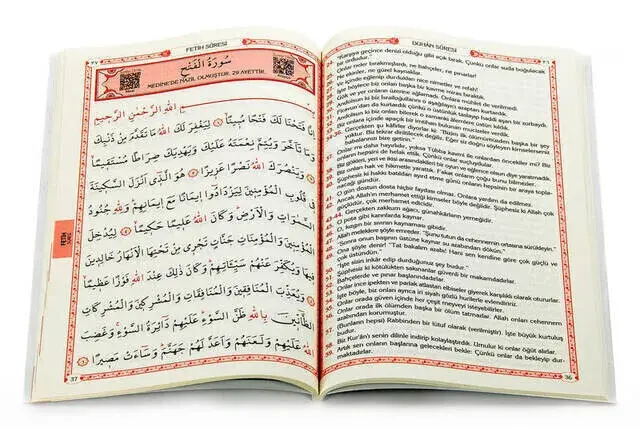 DUHÂN SÛRESİ
٣٦
"Karşıya geçince denizi olduğu gibi açık bırak. Çünkü onlar suda boğulacak
bir ordudur."
Onlar neler bırakmışlardı, ne bahçeler, ne pınarlar!
Ne ekinler, ne güzel konaklar.
Ve içinde eğlenip durdukları nice nimetler ve refah!
İşte böylece biz onları başka bir kavme miras bıraktık.
Gök ve yer onların üzerine ağlamadı. Onlara mühlet de verilmedi.
Andolsun ki biz İsrailoğullarını o aşağılayıcı azaptan kurtardık.
Firavun'dan da kurtardık çünkü o üstünlük taslayıp haddi aşan bir zorbaydı.
Andolsun ki biz onları bilerek o zamanki âlemlere üstün kıldık.
Biz onlara içinde apaçık bir imtihanı bulunan mucizeler verdik.
34-36. Gerçekten şu kâfirler diyorlar ki: "Bizim ilk ölümümüzden başka bir şey
yoktur. Biz tekrar diriltilecek değiliz. Eğer siz doğru söyleyen kimselerseniz
babalarımızı bize getirin."
37. Onlar mı daha hayırlıdır, yoksa Tübba kavmi ile onlardan öncekiler mi? Biz
onların hepsini de helak ettik. Çünkü onlar suçluydular.
38. Biz gökleri, yeri ve ikisi arasındakileri bir oyun ve eğlence olsun diye yaratmadık.
39. Biz onları ancak hak ile yarattık. Fakat onların çoğu bunu bilmezler.
40. Şüphesiz ki hakkı batıldan ayırd etme günü onların hepsinin bir araya toplanacağı gündür.
41. O gün dostun dosta hiçbir faydası olmaz. Onlara yardım da edilmez.
42. Ancak Allah'ın merhamet ettiği kimseler böyle değildir. Şüphesiz ki Allah çok
güçlüdür, çok merhamet edicidir.
43-44. Gerçekten zakkum ağacı, günahkârların yemeğidir.
45. O pota gibi karınlarda kaynar.
46. O, kızgın bir sıvının kaynaması gibidir.
47. Allah meleklere şöyle emreder: "Şunu tutun da cehennemin ortasına sürükleyin."
48. "Sonra onun başının üstüne kaynar su azabından dökün."
49. Ona şöyle denir: "Tat bakalım azabı! Hani sen kendine göre çok güçlü ve
çok üstündün."
50. "İşte sizin inkâr edip durduğunuz şey budur."
51. Şüphesiz ki kötülükten sakınanlar güvenli bir makamdadırlar.
52. Bahçelerde ve pınar başlarındadırlar.
53. Onlar ince ipekten ve parlak atlastan elbiseler giyerek karşılıklı olarak otururlar.
54. İşte böyle, biz onları ayrıca iri siyah gözlü hurilerle evlendiririz.
55. Onlar orada güven içinde her çeşit meyveyi isteyebilirler.
56. Onlar orada ilk ölümden başka bir ölüm tatmazlar. Allah onları cehennem
azabından korumuştur.
57. (Bunların hepsi) Rabbinden bir lütuf olarak (verilmiştir). İşte büyük kurtuluş
budur.
58. Biz Kur'an'ı senin dilinle indirip kolaylaştırdık. Umulur ki onlar öğüt alırlar.
59. Artık sen onların başlarına gelecekleri bekle: Çünkü onlar da bekleyip durmaktadırlar.
36
FETİH SÛRESİ
٣٧
سُورَةُ الْفَتْحِ
MEDİNE'DE NAZİL OLMUŞTUR. 29 AYETTİR.
بِسْمِ اللهِ الرَّحْمٰنِ الرَّحِيمِ
اِنَّا فَتَحْنَا لَكَ فَتْحًا مُبِينًا ۝ لِيَغْفِرَ لَكَ اللهُ مَا تَقَدَّمَ مِنْ ذَنْبِكَ
وَمَا تَأَخَّرَ وَيُتِمَّ نِعْمَتَهُ عَلَيْكَ وَيَهْدِيَكَ صِرَاطًا مُسْتَقِيمًا
۝ وَيَنْصُرَكَ اللهُ نَصْرًا عَزِيزًا ۝ هُوَ الَّذِى اَنْزَلَ السَّكِينَةَ
فِى قُلُوبِ الْمُؤْمِنِينَ لِيَزْدَادُوا اِيمَانًا مَعَ اِيمَانِهِمْ وَلِلّٰهِ جُنُودُ
السَّمٰوَاتِ وَالْاَرْضِ وَكَانَ اللهُ عَلِيمًا حَكِيمًا ۝ لِيُدْخِلَ
الْمُؤْمِنِينَ وَالْمُؤْمِنَاتِ جَنَّاتٍ تَجْرِى مِنْ تَحْتِهَا الْاَنْهَارُ خَالِدِينَ
فِيهَا وَيُكَفِّرَ عَنْهُمْ سَيِّـَٔاتِهِمْ وَكَانَ ذٰلِكَ عِنْدَ اللهِ فَوْزًا عَظِيمًا
۝ وَيُعَذِّبَ الْمُنَافِقِينَ وَالْمُنَافِقَاتِ وَالْمُشْرِكِينَ وَالْمُشْرِكَاتِ
الظَّانِّينَ بِاللهِ ظَنَّ السَّوْءِ عَلَيْهِمْ دَائِرَةُ السَّوْءِ وَغَضِبَ
اللهُ عَلَيْهِمْ وَلَعَنَهُمْ وَاَعَدَّ لَهُمْ جَهَنَّمَ وَسَاءَتْ مَصِيرًا ۝
FETİH
37